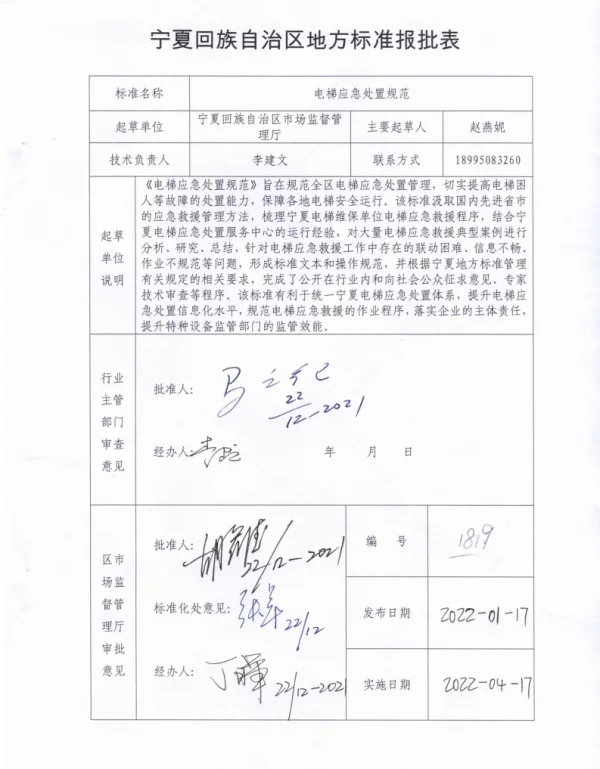 宁夏回族自治区地方标准报批表
标准名称 电梯应急处置规范
起草单位 宁夏回族自治区市场监督管
理厅 主要起草人 赵燕妮
技术负责人 李建文 联系方式 18995083260
起草
单位
说明
《电梯应急处置规范》旨在规范全区电梯应急处置管理，切实提高电梯困
人等故障的处置能力，保障各地电梯安全运行。该标准汲取国内先进省市
的应急救援管理方法，梳理宁夏电梯维保单位电梯应急救援程序，结合宁
夏电梯应急处置服务中心的运行经验，对大量电梯应急救援典型案例进行
分析、研究、总结，针对电梯应急救援工作中存在的联动困难、信息不畅、
作业不规范等问题，形成标准文本和操作规范，并根据宁夏地方标准管理
有关规定的相关要求，完成了公开在行业内和向社会公众征求意见、专家
技术审查等程序。该标准有利于统一宁夏电梯应急处置体系，提升电梯应
急处置信息化水平，规范电梯应急救援的作业程序，落实企业的主体责任，
提升特种设备监管部门的监管效能。
行业
主管
部门
审查
意见
批准人：
22
12-2021
经办人： 年 月 日
区市
场监
督管
理厅
审批
意见
批准人：
22/12-2021
标准化处意见：
22/12
经办人： 丁晖 22/12-2021
编 号 1819
发布日期 2022-01-17
实施日期 2022-04-17